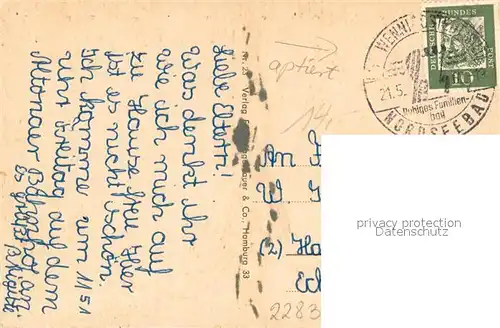 Liebe Eltern!
Was denkt ihr
wie ich mich auf
zu Hause freu. Hier
ist es nicht schön.
Ich komme um 11 51
Uhr Freitag auf dem
Altonaer Bahnhof an
Es grüßt
Verlag
& Co., Hamburg 33
aptiert
14
DEUTSCHE BUNDESPOST
10
WENNI
21.5.
Ruhiges Familien-
bad
NORDSEEBAD
(2) Ha
2283
privacy protection
watermark